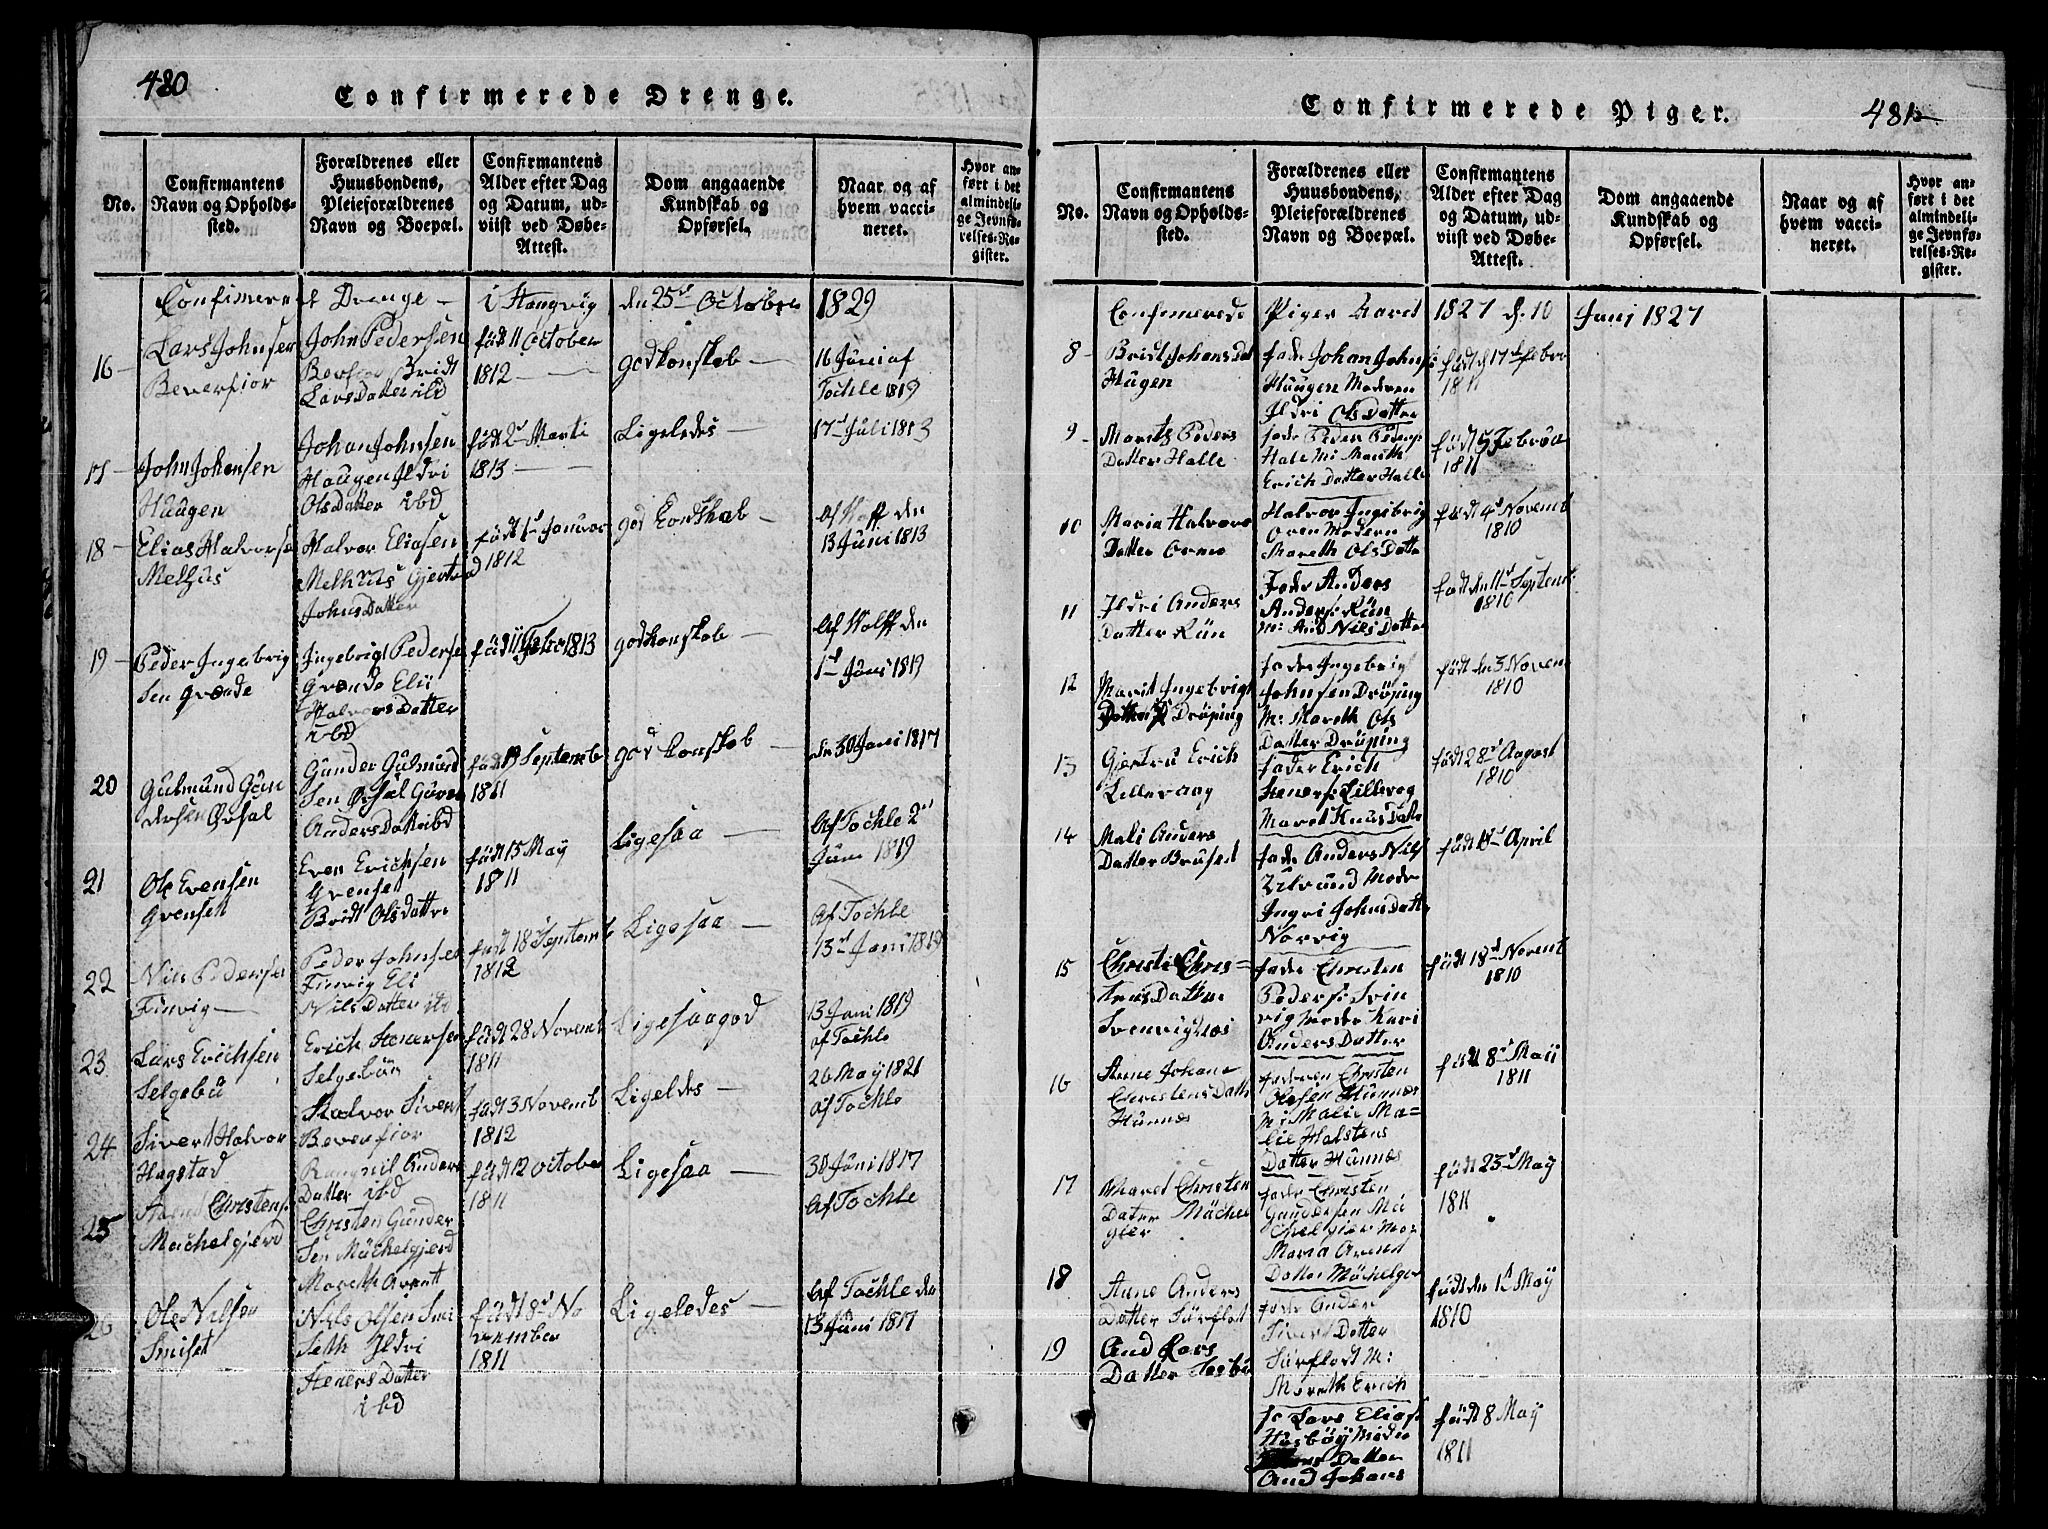 480
Confirmerede Drenge.
No.
Confirmantens
Navn og Opholds-
sted.
Forældrenes eller
Huusbondens,
Pleieforældrenes
Navn og Boepæl.
Confirmantens
Alder efter Dag
og Datum, ud-
viist ved Døbe-
Attest.
Dom angaaende
Kundskab og
Opførsel.
Naar og af
hvem vacci-
neret.
Hvor an-
ført i det
almindeli-
ge Jevnfø-
relses-Re-
gister.
Confimere
et Drenge -
i Stangvig
den 25d October
1829
16 -
Lars Johnsen
Beverfior
John Pedersen
Bridt
Lars Datter ibd
fød 11 October
1812 -
god konskab -
16 Juni af
Tochle 1819
17 -
John Johansen
Haugen
Johan Johnsen
Haugen Ildri
Ols Datter ibd
fød 2d Marti
1813 -
Ligeledes -
17d Juli 1813
18 -
Elias Halvorse
Melhus
Halvor Eliasen
Melhus Gjertrud
Johns Datter
født 1d Januar
1812
god konskab -
af Wolff den
13 Juni 1813
19 -
Peder Ingebrig
sen Grønde
Ingebrigt Pederse
Grønde Eli
Halvors Datter
ibd
fød 11 Febr 1813
god konskab -
af Wolff den
1d Juni 1819
20
Gulmund Gun
dersen Ørsal
Gunder Gulmund
sen Ørsal
Anders Datter ibd
fød 19 Septemb
1811
god konskab -
den 30 Juni 1817
21
Ole Evensen
Grønset
Even Erichsen
Grønset
Bridt Olsdatter
født 15 May
1811
Ligesaa -
Af Tochle 2d
Juni 1819
22
Nils Pedersen
Finvig -
Peder Johnsen
Finvig Eli
Nils Datter ibd
født 18 Septemb
1812
Ligesaa -
Af Tochle
13d Juni 1819
23
Lars Erichsen
Selgebu
Erich
Selgebu
født 28 Novemb
1811
Ligesaa god
13 Juni 1819
af Tochle
24
Sivert Halvor
Hagstad
Halvor Sivert
Beverfior
Rangnil Anders
Datter ibd
født 3 Novemb
1812
Ligeldes -
26 May 1821
af Tochle
25
Christens
Machelgjerd
Christen Gunder
sen Mächelgjerd
Mareth Arent
født 12 October
1811
Ligesaa -
30 Juni 1817
Af Tochle
26
Ole Nilsen
Smiset
Nils Olsen Smi
seth Ildri
Steners Datter
ibd
født 8d No
vember
1811
Ligeledes -
Af Tochle den
13 Juni 1817
Confirmerede Piger.
481
No.
Confirmantens
Navn og Opholds-
sted.
Forældrenes eller
Huusbondens,
Pleieforældrenes
Navn og Boepæl.
Confirmantens
Alder efter Dag
og Datum, ud-
viist ved Døbe-
Attest.
Dom angaaende
Kundskab og
Opførsel.
Naar og af
hvem vacci-
neret.
Hvor an-
ført i det
almindeli-
ge Jevnfø-
relses-Re-
gister.
Confimerede
Piger Aaret
1827 d. 10
Juni 1827
8 -
Bridt Johans Dat
Hugen
fadr Johan Johns
Haugen Moderen
Ildri Ols Datter
født d 17d Febr
1811
9 -
Marits Peders
Datter Halle
fadr Peder Peders
Hale M: Mareth
Erich Datter Halle
født 5 Februa
1811
10
Maria Halvors
Datter Ormo
Halvor Ingebrig
Moderen
Mareth Ols Datter
født 4d Novemb
1810
11
Ildri Anders
Datter Rün
Fadr Anders
Anders: Rün
M: And Nils Datter
født den 11d Septemb
1810
12
Marit Ingebrigt
Datter Drøping
fadr Ingebrigt
Johnsen Drøping
M: Mareth Ols
Datter Drøping
født den 3 Novem
1810
13
Gjertru Erich
Lillevaag
fader Erich
Steners: Lillevog
Maret Knus Datter
født 28d August
1810
14
Mali Anders
Datter Bruset
fadr Anders Nils
Ulvund Modr
Ingri Johns Datter
Norvig
April
15
Christi Chris=
tens Datter
Svenvignes
fadr Christen
Peders: Svin
vig Moder Kari
Anders Datter
født 18d Novemb
1810
16
Anne Johane
Christens Datter
Hunnæs
faderen Christen
Olsen Hunnæs
M: Malie Ma=
lie Halstens
Datter Hunnæs
født 8d May
1811
17
Maret Christen
Dater Mächel
gier
fadr Christen
Gundersen Mä
chelgier Mor
Maria Arent
Datter Mächelgier
født 23d May
1811
18
Anne Anders
Datter Surflot
fadr Ander
Sivert Datter
Surflodt M:
Mareth Erich
født den 1d May
1810
19
And Lars
Datter
fr Lars Elias
Husbøy Moder
Datter
And Johans
født 8 May
1811